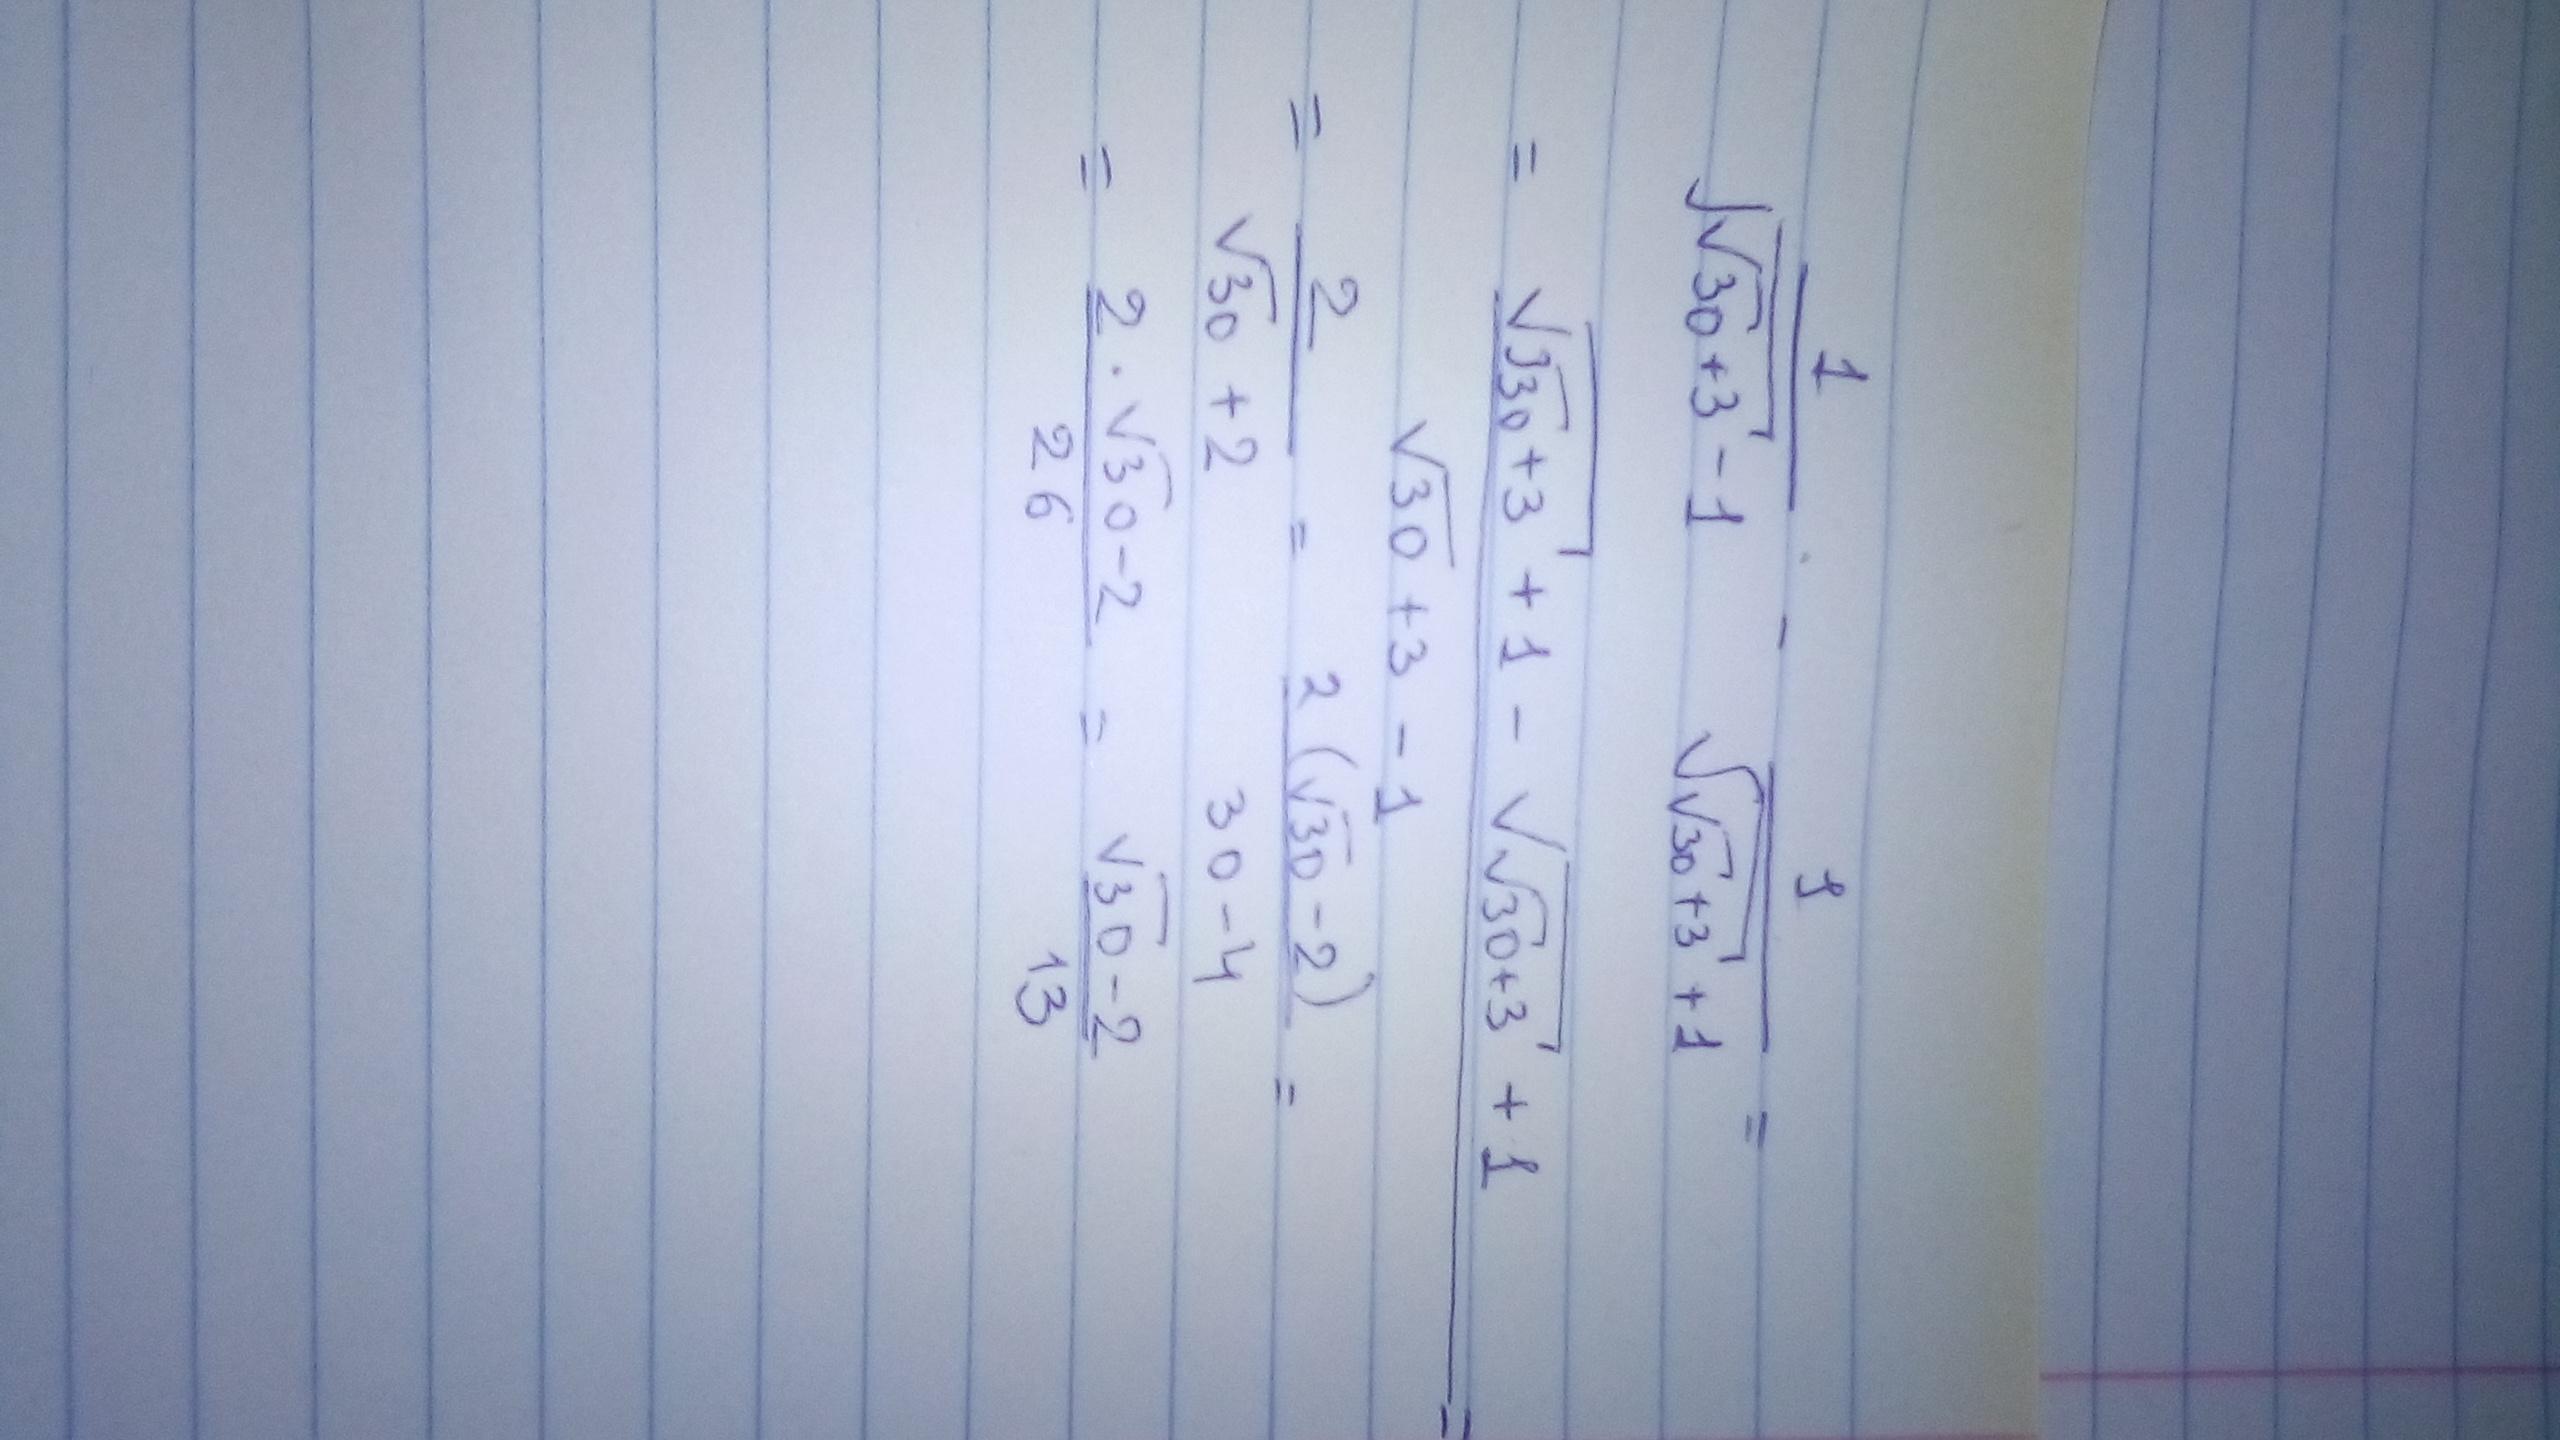 1/(√(√30+3) - 1) - 1/(√(√30+3) + 1) =
= (√(√30+3) + 1 - √(√30+3) + 1)/(√30 + 3 - 1) =
= 2/(√30 + 2) = 2(√30 - 2)/(30 - 4) =
= (2 · √30 - 2)/26 = (√30 - 2)/13